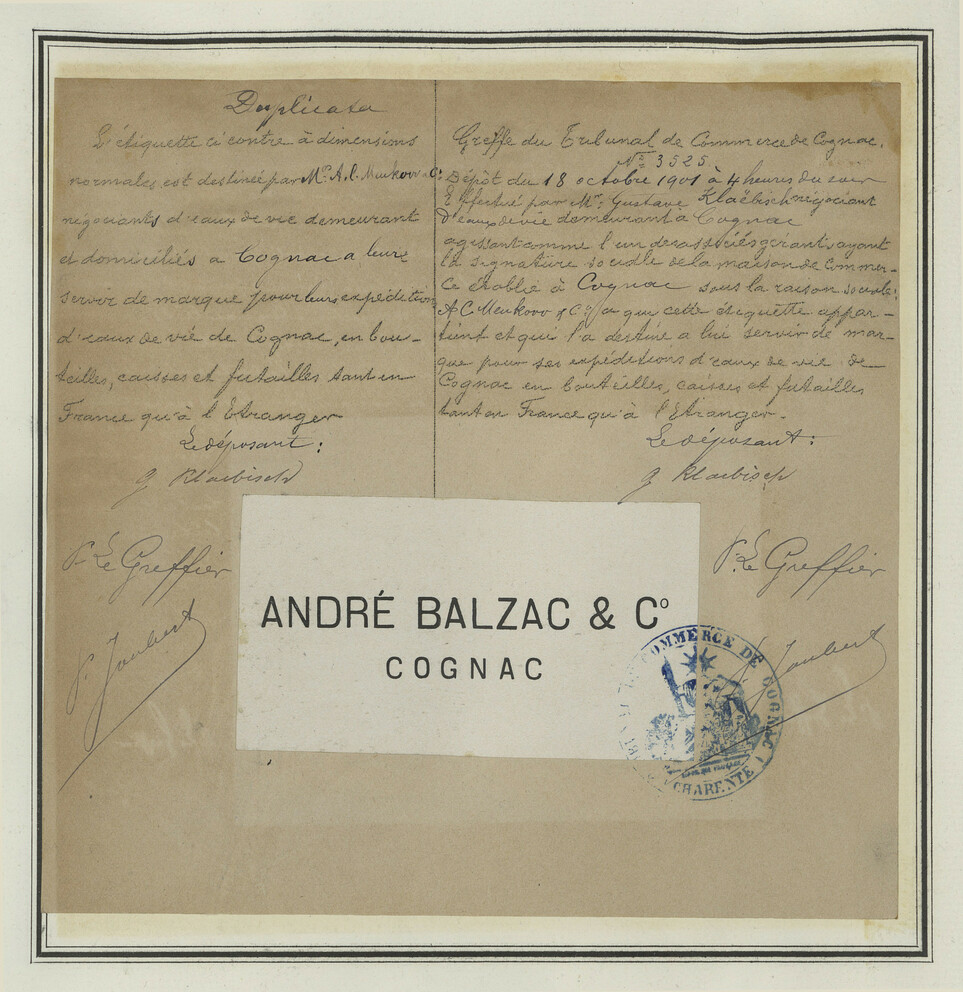 Duplicata
L'étiquette ci contre à dimensions
normales, est destinée par Mrs A. C. Meukow & Co
négociants d'eaux de vie demeurant
et domiciliés a Cognac a leur
servir de marque pour leurs expéditions
d'eaux de vie de Cognac, en bou-
teilles, caisses et futailles tant en
France qu'à l'Etranger
Le déposant:
g Klaebisch
P. Le Greffier
P. Joubert
Greffe du Tribunal de Commerce de Cognac.
No 3525
Dépôt du 18 octobre 1901 à 4 heures du soir
Effectué par Mr. Gustave Klaëbisch négociant
d'eaux de vie demeurant a Cognac
agissant comme l'un des associés gérants ayant
la signature sociale de la maison de commer-
ce établie à Cognac sous la raison sociale:
A C Meukow & Co, a que cette étiquette appar-
tient et qui l'a destiné a lui servir de mar-
que pour ses expéditions d'eaux de vie de
Cognac en bouteilles, caisses et futailles
tant en France qu'à l'Etranger.
Le déposant:
g Klaebisch
P. Le Greffier
P. Joubert
ANDRÉ BALZAC & Co
COGNAC
COMMERCE DE COGNAC
CHARENTE